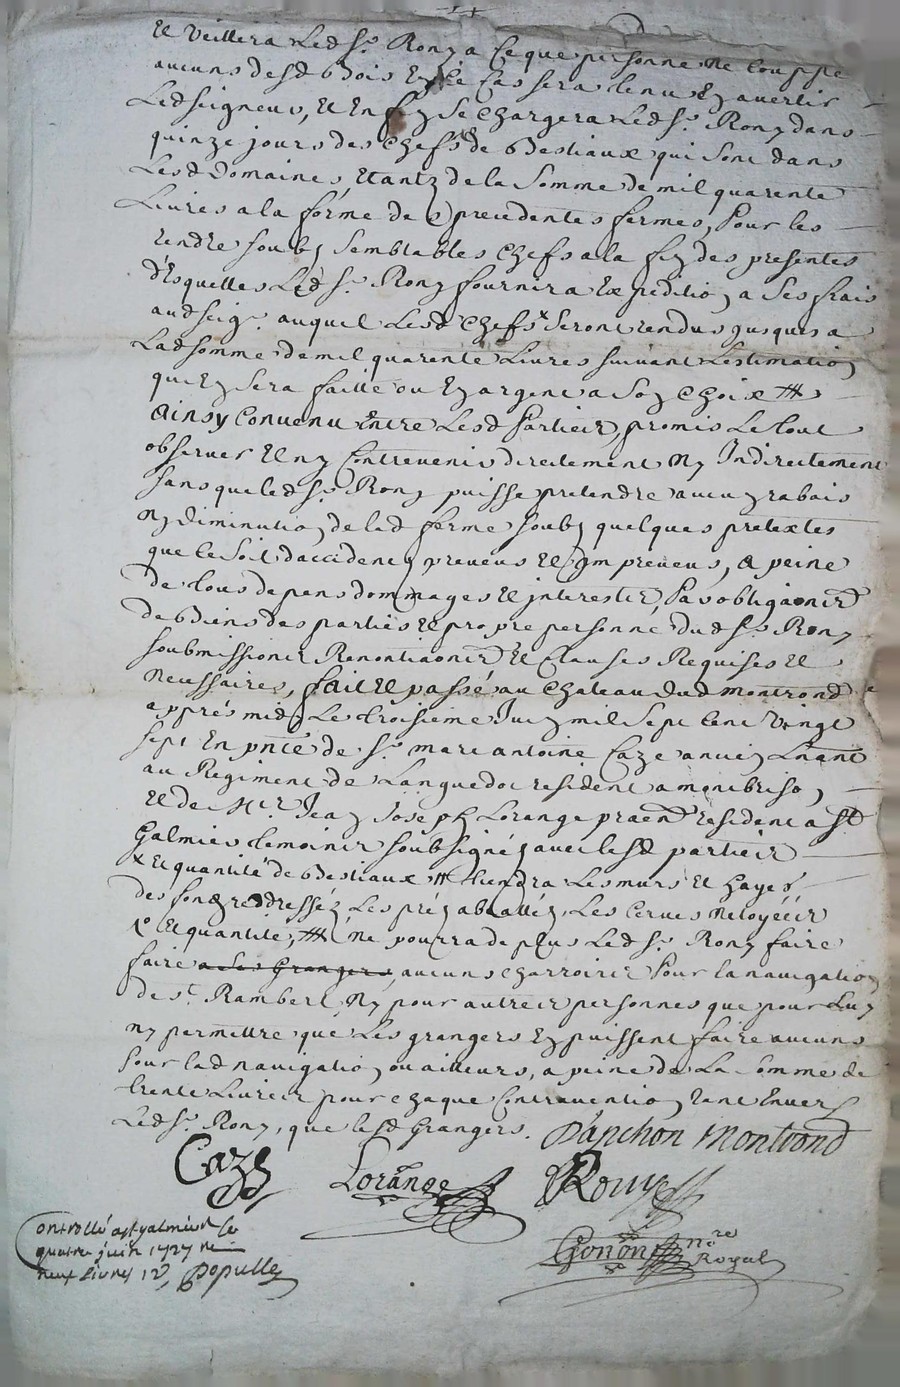 et veillera led sr. Rony a ce que personne ne couppe
aucuns desd bois et en ce cas sera tenu den avertir
led seigneur, et enfin se chargera led sr. Rony dans
quinze jours des chefs de bestiaux qui sont dans
lesd domaines, etantz de la somme de mil quarente
livres a la forme des precedentes fermes, pour les
rendre soubz semblables chefs a la fin des presentes
desquelles led sr. Rony fournira expedition a ses frais
aud seigr. auquel lesd chefs x seront rendus jusques a
lad somme de mil quarente livres suivant lestimation
qui en sera faitte ou en argent a son choix #
ainsy convenu entre lesd parties, promis le tout
observer et ny contrevenir directement ny indirectement
sans que led sr. Rony puisse pretendre aucun rabais
ny diminution de lad ferme soubz quelques pretextes
que ce soit daccident preveus et impreveus, a peine
de tous depens dommages et interestz, par obligaons
de biens des parties et propre personne dud sr. Rony
soubmissions Renontiaons et clauses Requises et
necessaires, fait et passé au chateau dud montrond
appres midy le troisieme Juin mil sept cent vingt
sept en pnce de sr. marc antoine Caze ancien Lnant
au Regiment de Languedoc resident a montbrison
et de Me Jean Joseph Lorange praen resident a St
Galmier temoins soubsignez avec lesd parties
x et quantité de bestiaux # tiendra les murs et hayes
des fondz redressez, les prez aballez, les cerves netoyées
x et quantité, # ne pourra de plus led sr. Rony faire
faire a ses Grangers, aucuns charroirs pour la navigation
de st. Rambert, ny pour autres personnes que pour luy
ny permettre que les grangers en puissent faire aucuns
pour lad navigation ou ailleurs, a peine de la somme de
trente livres pour chaque contravention tant envers
led sr. Rony, que lesd Grangers. Dapchon Montrond
Caze Lorange Rony
Gonon nre Royal
Controllé a st galmier le
quatre juin 1727 re
neuf livres 12s, Populle